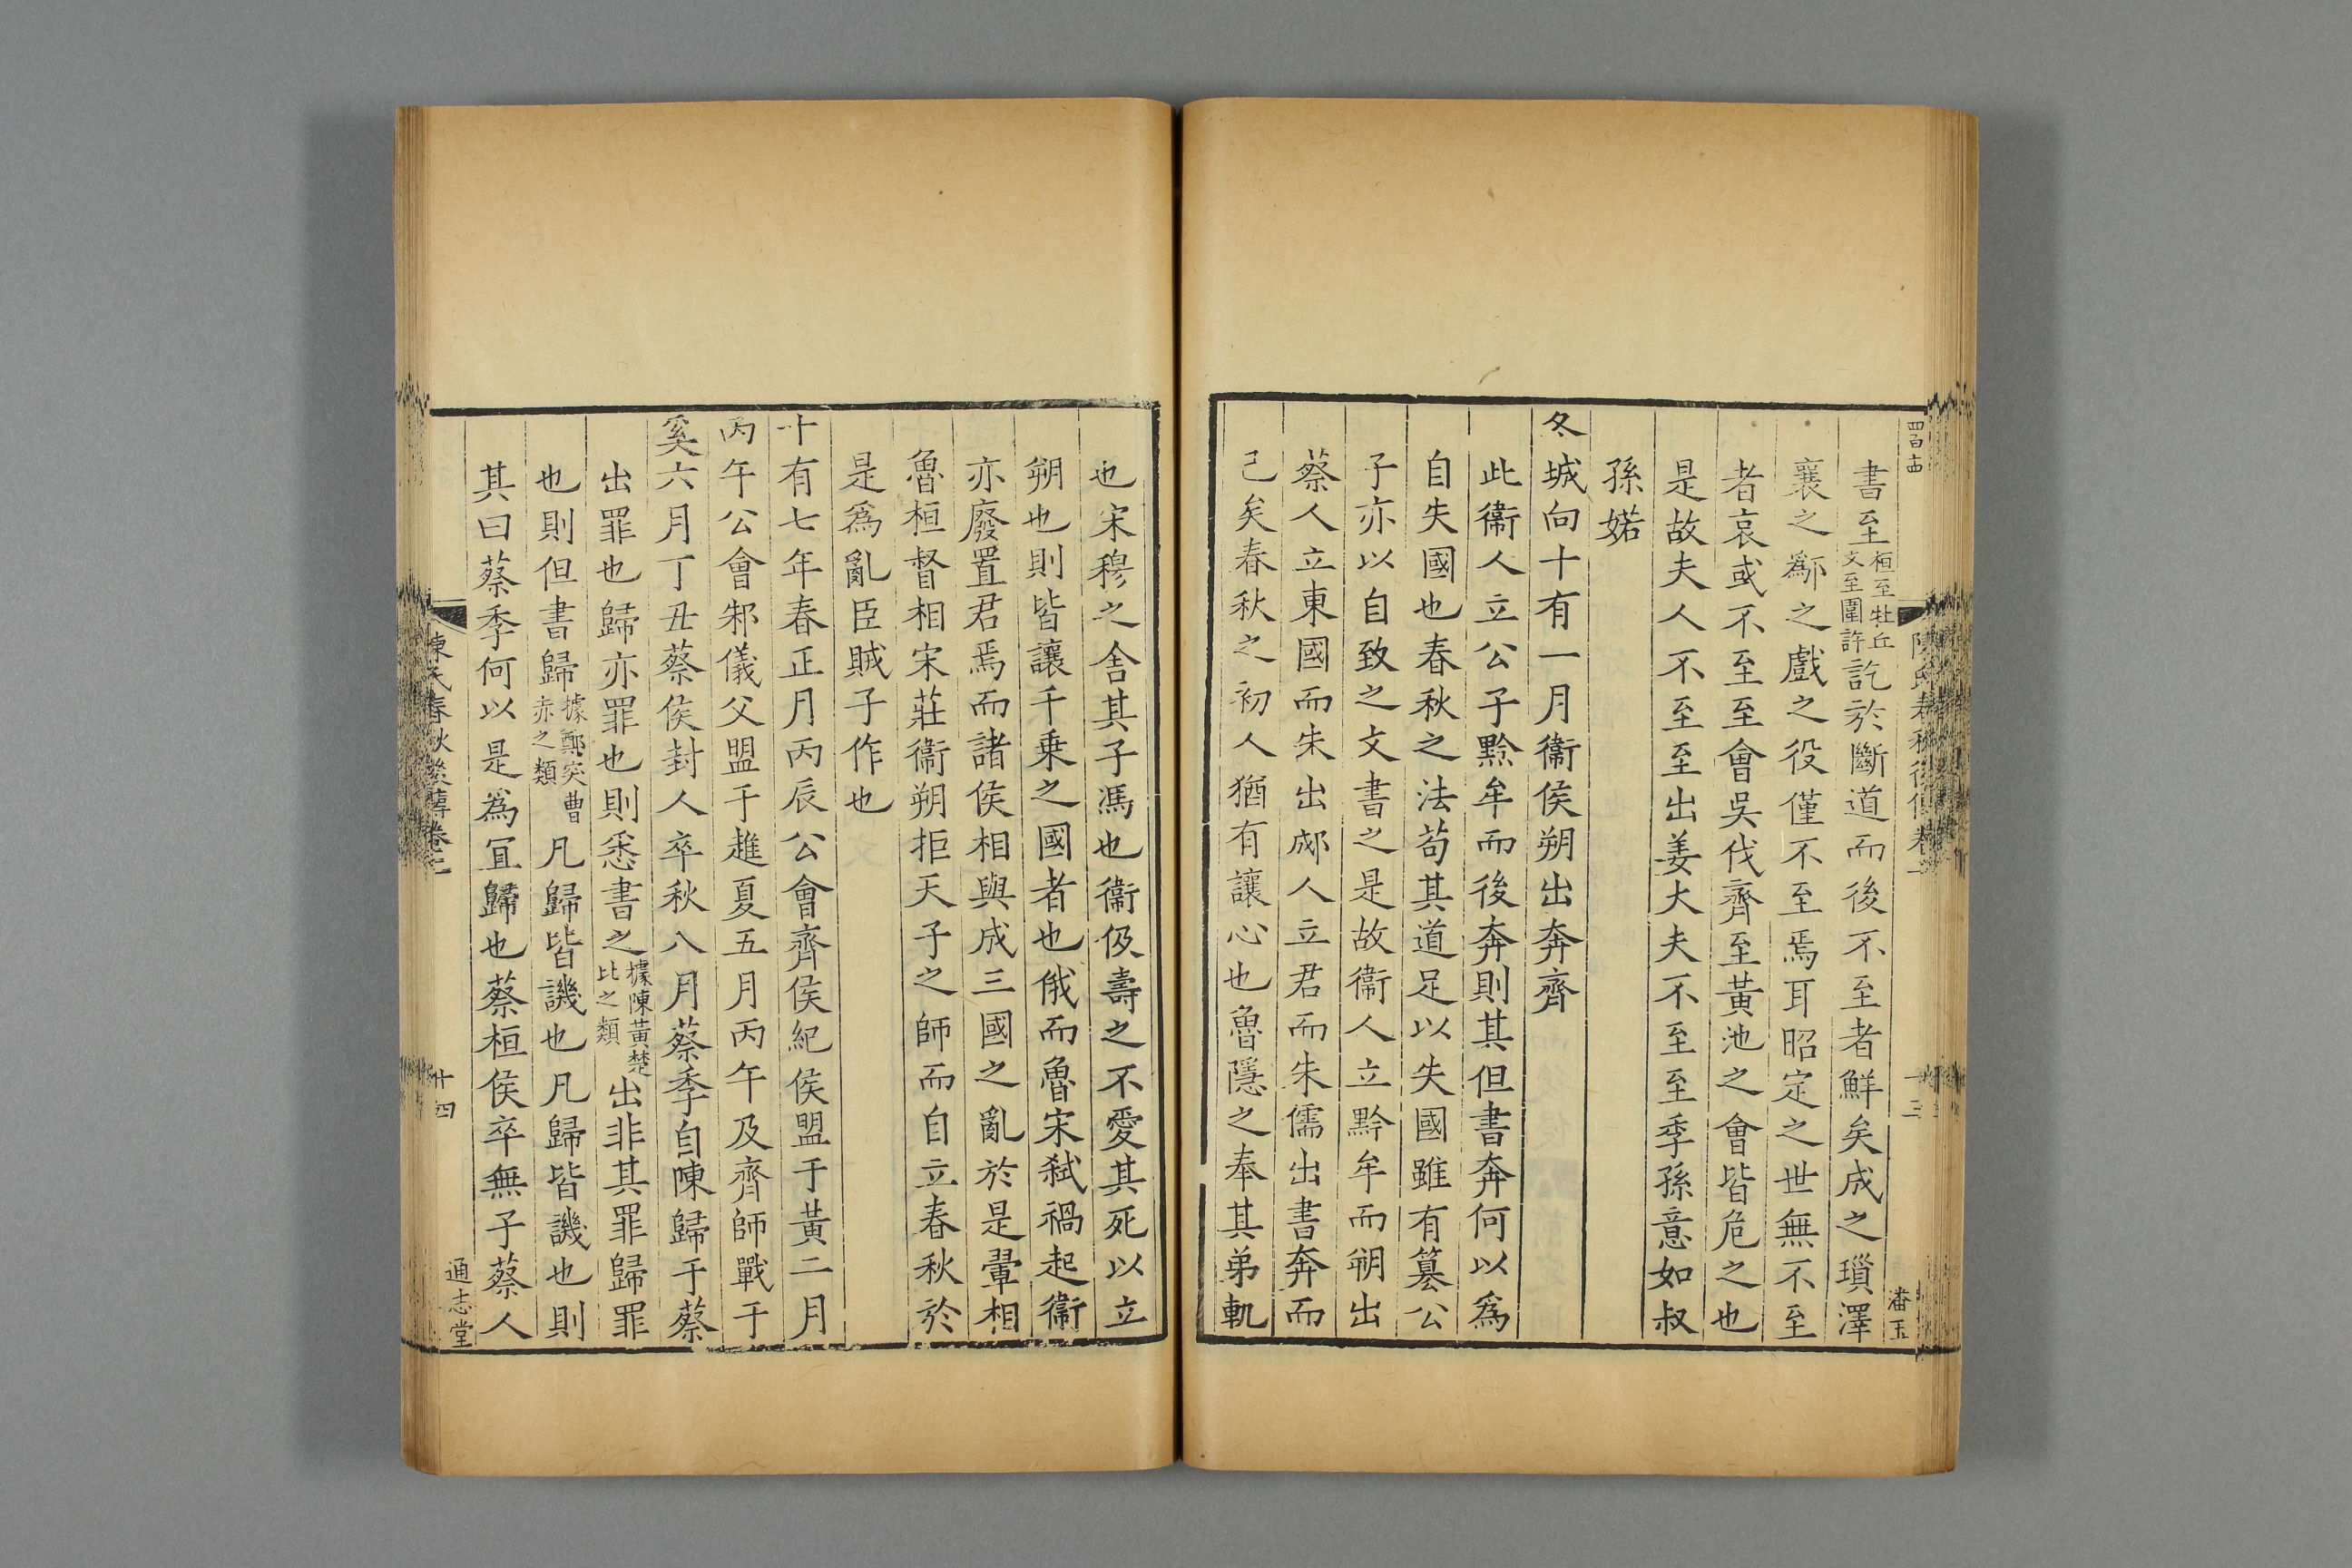 四百十四
書至桓至牡丘文至圍許訖於斷道而後不至者鮮矣成之瑣澤
襄之鄬之戲之役僅不至焉耳昭定之世無不至
者哀或不至至會吳伐齊至黃池之會皆危之也
是故夫人不至至出姜大夫不至至季孫意如叔
孫婼
冬城向十有一月衞侯朔出奔齊
此衞人立公子黔牟而後奔則其但書奔何以爲
自失國也春秋之法苟其道足以失國雖有篡公
子亦以自致之文書之是故衞人立黔牟而朔出
蔡人立東國而朱出郕人立君而朱儒出書奔而
已矣春秋之初人猶有讓心也魯隱之奉其弟軌
十三
潘玉
也宋穆之舍其子馮也衞伋壽之不愛其死以立
朔也則皆讓千乗之國者也俄而魯宋弑禍起衞
亦廢置君焉而諸侯相與成三國之亂於是翬相
魯桓督相宋莊衞朔拒天子之師而自立春秋於
是爲亂臣賊子作也
十有七年春正月丙辰公會齊侯紀侯盟于黃二月
丙午公會邾儀父盟于趡夏五月丙午及齊師戰于
奚六月丁丑蔡侯封人卒秋八月蔡季自陳歸于蔡
出罪也歸亦罪也則悉書之據陳黃楚比之類出非其罪歸罪
也則但書歸據鄭突曹赤之類凡歸皆譏也凡歸皆譏也則
其曰蔡季何以是爲宜歸也蔡桓侯卒無子蔡人
陳氏春秋後傳卷二
十四
通志堂